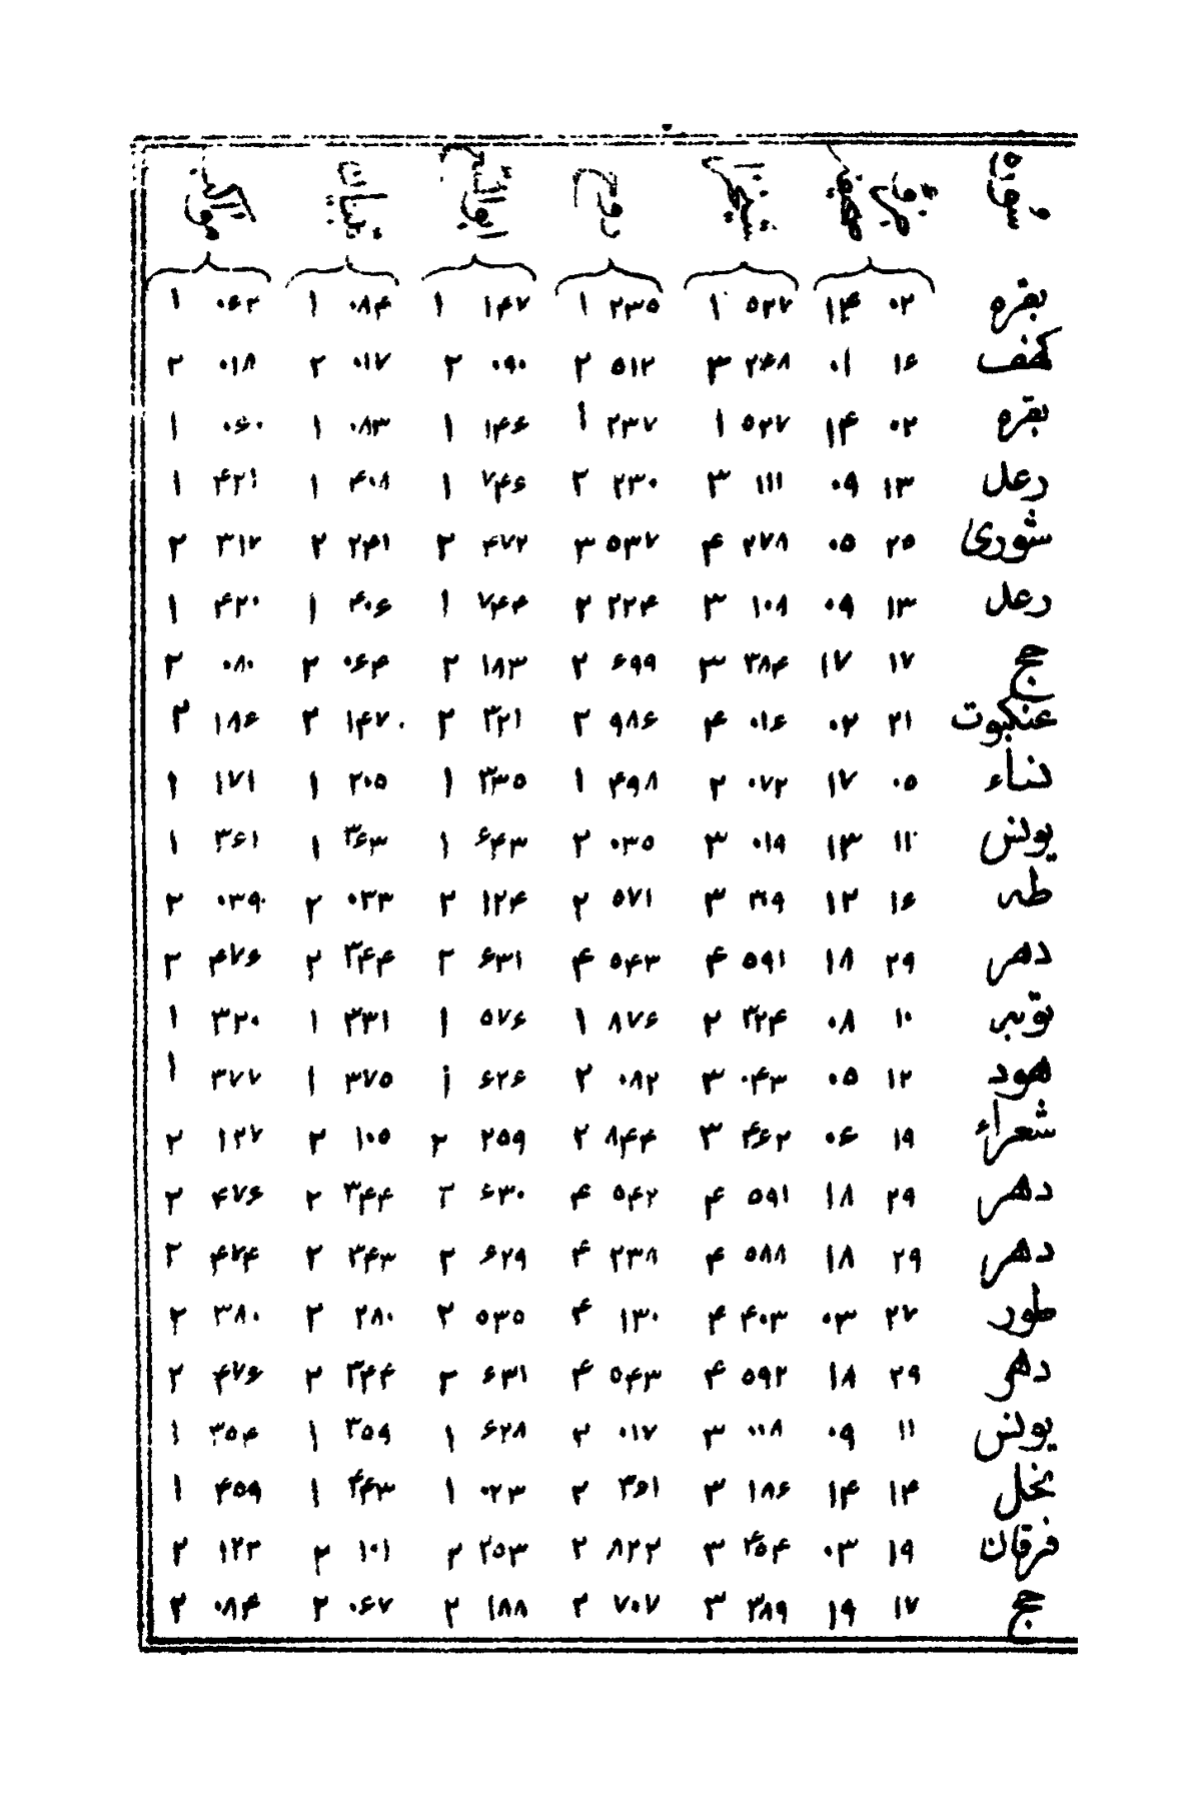 سوره
بقره ۰۲ ۱۴ ۵۲۷ ۱ ۲۳۵ ۱ ۱۴۷ ۱ ۰۸۴ ۱ ۰۶۲ ۱
کهف ۱۶ ۰۱ ۲۶۸ ۳ ۵۱۲ ۲ ۰۹۰ ۲ ۰۱۷ ۲ ۰۱۸ ۲
بقره ۰۲ ۱۴ ۵۲۷ ۱ ۲۳۷ ۱ ۱۴۶ ۱ ۰۸۳ ۱ ۰۶۰ ۱
رعد ۱۳ ۰۹ ۱۱۱ ۳ ۲۳۰ ۲ ۷۴۶ ۱ ۴۰۸ ۱ ۴۲۱ ۱
شوری ۲۵ ۰۵ ۲۷۸ ۴ ۵۳۷ ۳ ۴۷۲ ۲ ۲۴۱ ۲ ۳۱۲ ۲
رعد ۱۳ ۰۹ ۱۰۸ ۳ ۲۲۴ ۲ ۷۴۴ ۱ ۴۰۶ ۱ ۴۲۰ ۱
حج ۱۷ ۱۷ ۳۸۴ ۳ ۶۹۹ ۲ ۱۸۳ ۲ ۰۶۴ ۲ ۰۸۰ ۲
عنکبوت ۲۱ ۰۲ ۰۱۶ ۴ ۹۸۶ ۲ ۳۲۱ ۲ ۱۴۷ ۲ ۱۸۶ ۲
نساء ۰۵ ۱۷ ۰۷۲ ۲ ۴۹۸ ۱ ۳۳۵ ۱ ۲۰۵ ۱ ۱۷۱ ۱
یونس ۱۱ ۱۳ ۰۱۹ ۳ ۰۳۵ ۲ ۶۴۳ ۱ ۳۶۳ ۱ ۳۶۱ ۱
طه ۱۶ ۱۲ ۳ ۵۷۱ ۲ ۱۲۴ ۲ ۰۳۳ ۲ ۰۳۹ ۲
دهر ۲۹ ۱۸ ۵۹۱ ۴ ۵۴۳ ۴ ۶۳۱ ۲ ۳۴۴ ۲ ۴۷۶ ۲
توبه ۱۰ ۰۸ ۳۲۴ ۲ ۸۷۶ ۱ ۵۷۶ ۱ ۳۳۱ ۱ ۳۲۰ ۱
هود ۱۲ ۰۵ ۰۴۳ ۳ ۰۸۲ ۲ ۶۲۶ ۱ ۳۷۵ ۱ ۳۷۷ ۱
شعراء ۱۹ ۰۶ ۴۶۲ ۳ ۸۴۴ ۲ ۲۵۹ ۲ ۱۰۵ ۲ ۱۲۷ ۲
دهر ۲۹ ۱۸ ۵۹۱ ۴ ۵۴۲ ۴ ۶۳۰ ۲ ۳۴۴ ۲ ۴۷۶ ۲
دهر ۲۹ ۱۸ ۵۸۸ ۴ ۲۳۸ ۴ ۶۲۹ ۲ ۳۴۳ ۲ ۴۷۴ ۲
طور ۲۷ ۰۳ ۴۰۳ ۴ ۱۳۰ ۴ ۵۳۵ ۲ ۲۸۰ ۲ ۳۸۰ ۲
دهر ۲۹ ۱۸ ۵۹۲ ۴ ۵۴۳ ۴ ۶۳۱ ۲ ۳۴۴ ۲ ۴۷۶ ۲
یونس ۱۱ ۰۹ ۰۰۸ ۳ ۰۱۷ ۲ ۶۲۸ ۱ ۳۵۹ ۱ ۳۵۴ ۱
نحل ۱۴ ۱۴ ۱۸۶ ۳ ۳۶۱ ۲ ۰۲۳ ۱ ۴۴۳ ۱ ۴۵۹ ۱
فرقان ۱۹ ۰۳ ۴۵۴ ۳ ۸۲۲ ۲ ۲۵۳ ۲ ۱۰۱ ۲ ۱۲۳ ۲
حج ۱۷ ۱۹ ۳۸۹ ۳ ۷۰۷ ۲ ۱۸۸ ۲ ۰۶۷ ۲ ۰۸۴ ۲